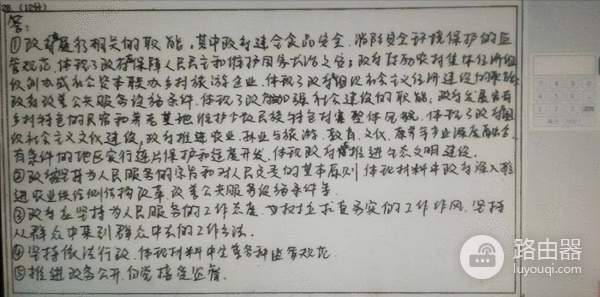 28. (12分)
答:
①政府履行相关的职能,其中政府建全食品安全、消防安全环境保护的监
管规范,体现了政府保障人民民主和维护国家长治久安;政府鼓励农村集体经济组
织创办或社会资本联办乡村旅游企业,体现了政府组织社会主义经济建设的职能;
政府改善公共服务设施条件,体现了政府加强社会建设的职能;政府发展富有
乡村特色的民宿和养老基地,维护少数民族特色村寨整体风貌,体现了政府组
织社会主义文化建设,政府推进农业、林业与旅游、教育、文化、康养等产业深度融合,
有条件的地区实行连片保护和适度开发,体现政府推进生态文明建设。
②政府坚持为人民服务的宗旨和对人民负责的基本原则,体现材料中政府深入推
进农业供给侧结构改革,改善公共服务设施条件等。
③政府应坚持为人民服务的工作态度,求真务实的工作作风,坚持
从群众中来到群众中去的工作方法。
④坚持依法行政,体现材料中监管规范
⑤推进政务公开,自觉接受监督。
路由器
luyouqi.com